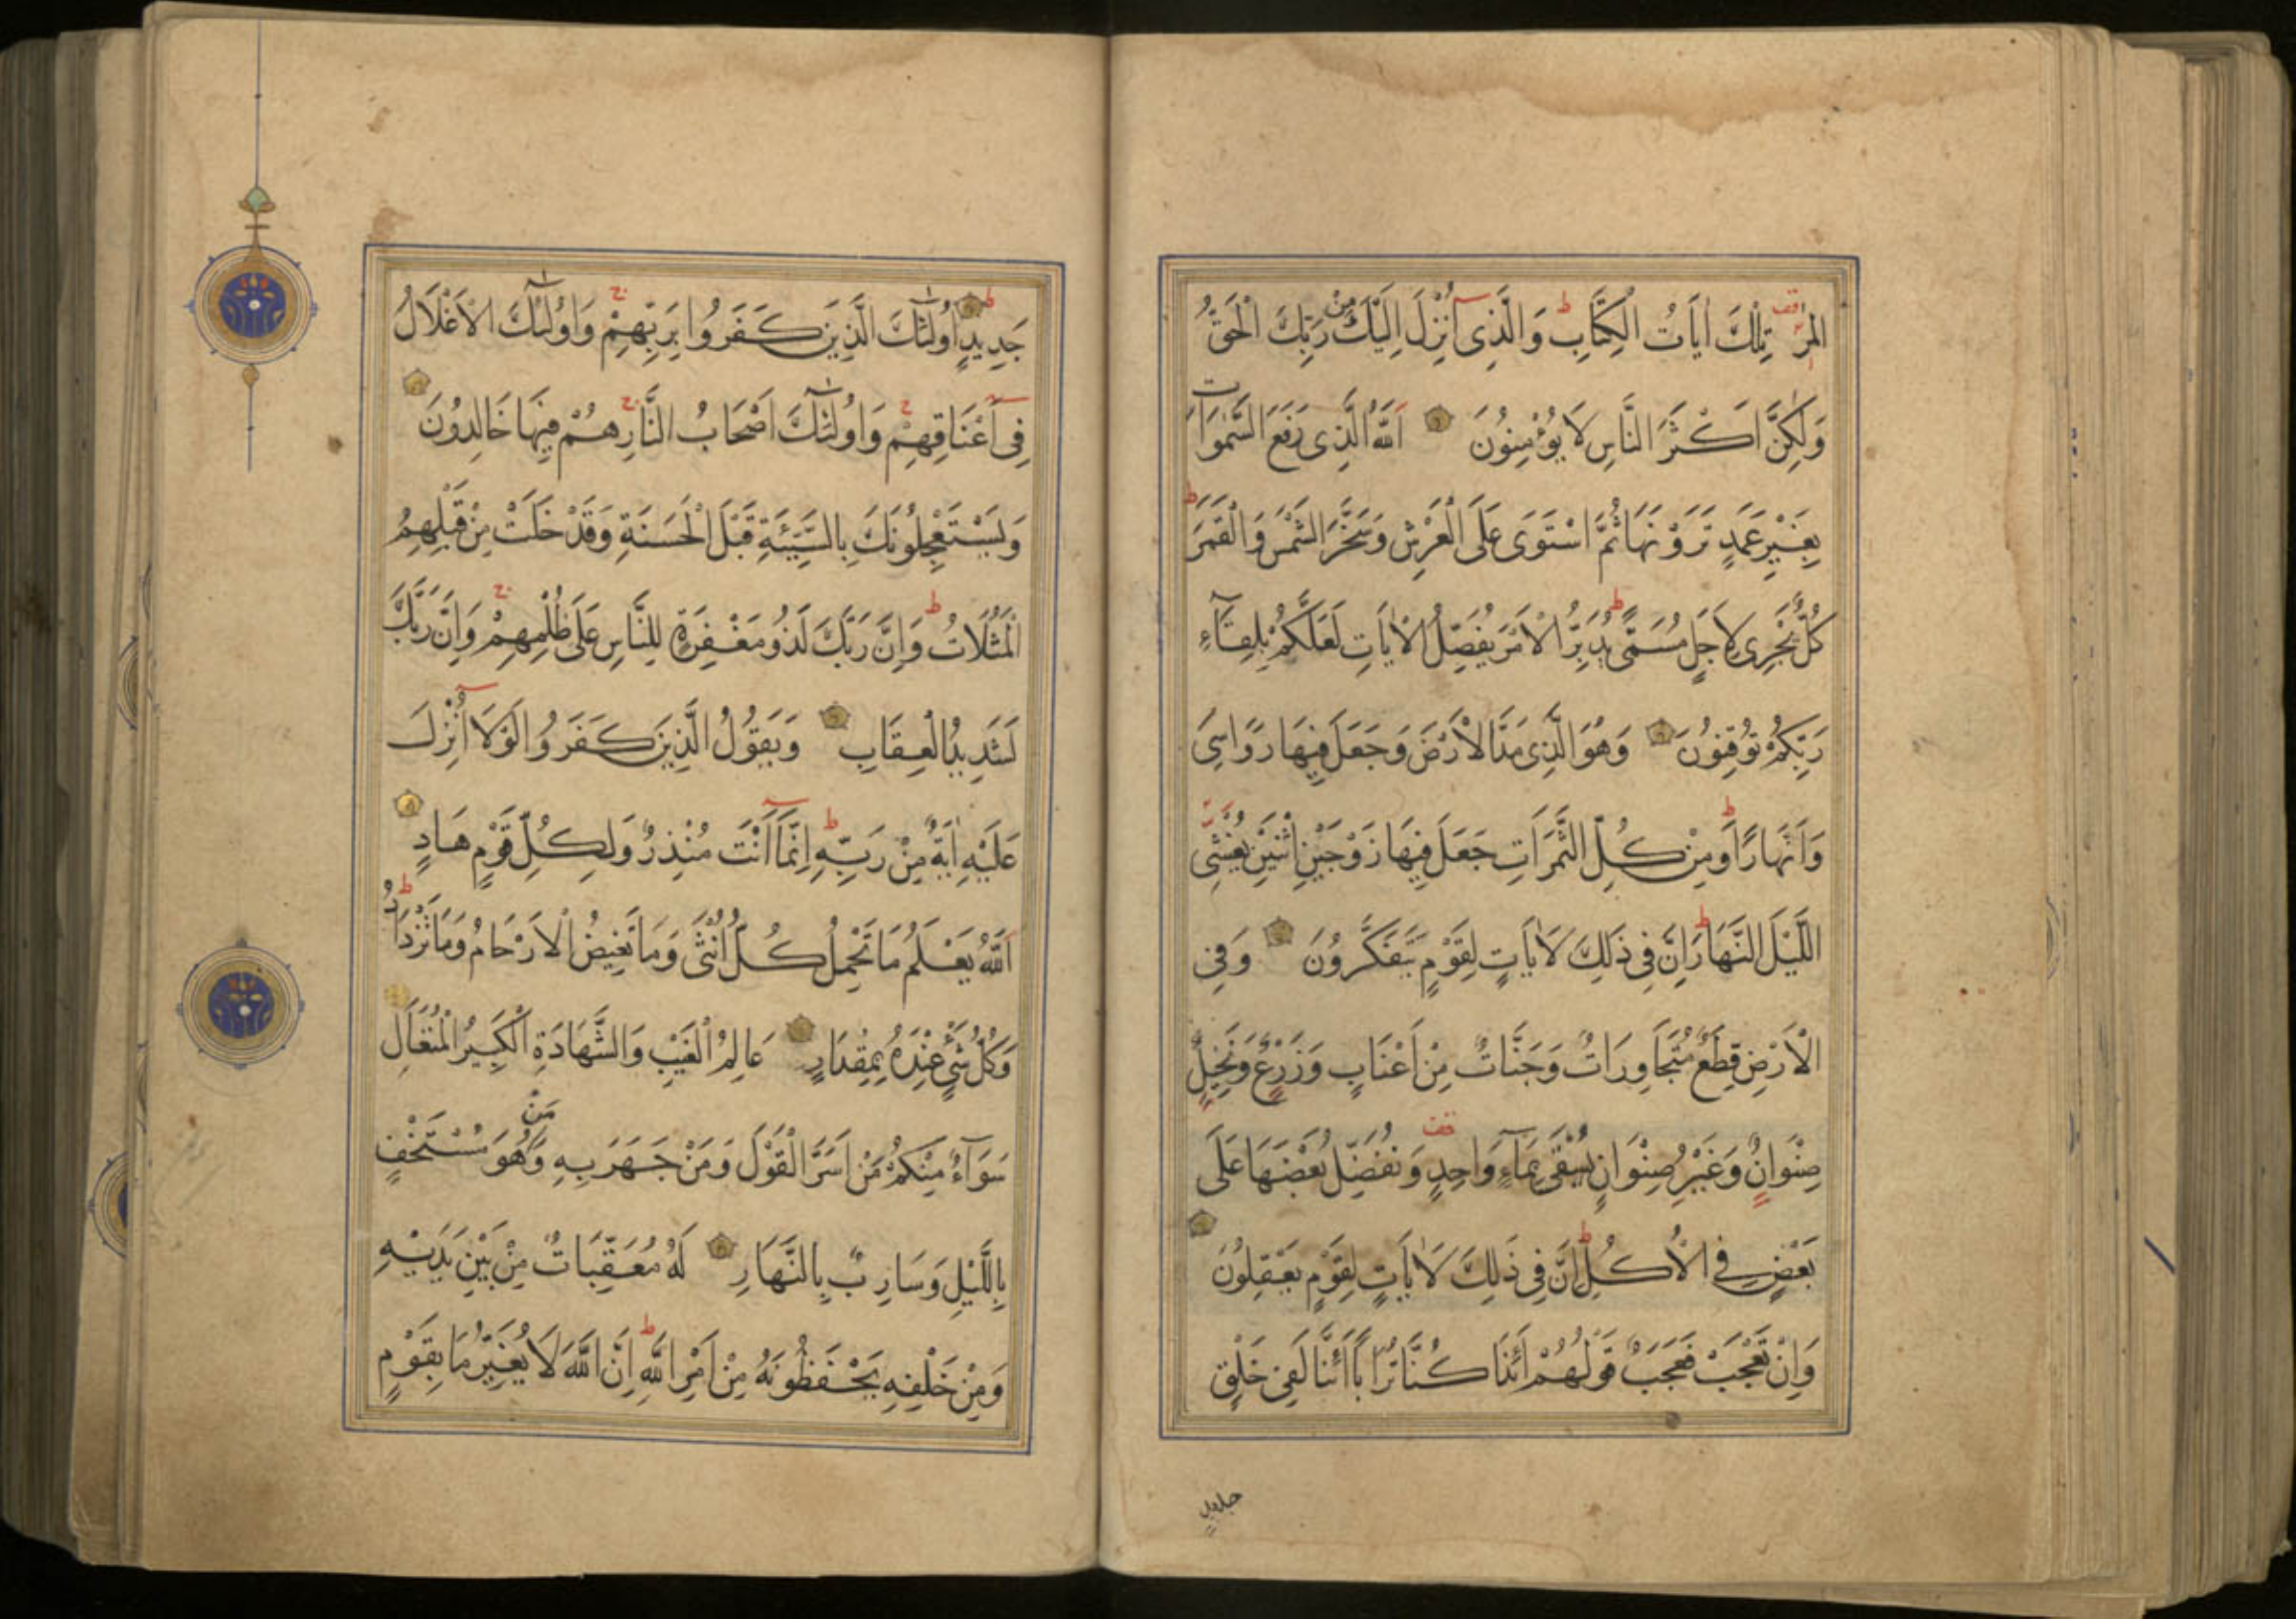 المر تِلْكَ اٰيَاتُ الْكِتَابِ وَالَّذِى اُنْزِلَ اِلَيْكَ مِنْ رَبِّكَ الْحَقُّ
وَلٰكِنَّ اَكْثَرَ النَّاسِ لَا يُؤْمِنُونَ اَللّٰهُ الَّذِى رَفَعَ السَّمٰوَاتِ
بِغَيْرِ عَمَدٍ تَرَوْنَهَا ثُمَّ اسْتَوَى عَلَى الْعَرْشِ وَسَخَّرَ الشَّمْسَ وَالْقَمَرَ
كُلٌّ يَجْرِى لِاَجَلٍ مُسَمًّى يُدَبِّرُ الْاَمْرَ يُفَصِّلُ الْاٰيَاتِ لَعَلَّكُمْ بِلِقَآءِ
رَبِّكُمْ تُوقِنُونَ وَهُوَ الَّذِى مَدَّ الْاَرْضَ وَجَعَلَ فِيهَا رَوَاسِىَ
وَاَنْهَارًا وَمِنْ كُلِّ الثَّمَرَاتِ جَعَلَ فِيهَا زَوْجَيْنِ اثْنَيْنِ يُغْشِى
اللَّيْلَ النَّهَارَ اِنَّ فِى ذٰلِكَ لَاٰيَاتٍ لِقَوْمٍ يَتَفَكَّرُونَ وَفِى
الْاَرْضِ قِطَعٌ مُتَجَاوِرَاتٌ وَجَنَّاتٌ مِنْ اَعْنَابٍ وَزَرْعٌ وَنَخِيلٌ
صِنْوَانٌ وَغَيْرُ صِنْوَانٍ يُسْقَى بِمَآءٍ وَاحِدٍ وَنُفَضِّلُ بَعْضَهَا عَلَى
بَعْضٍ فِى الْاُكُلِ اِنَّ فِى ذٰلِكَ لَاٰيَاتٍ لِقَوْمٍ يَعْقِلُونَ
وَاِنْ تَعْجَبْ فَعَجَبٌ قَوْلُهُمْ اَئِذَا كُنَّا تُرَابًا اَئِنَّا لَفِى خَلْقٍ
جَدِيدٍ اُولٰئِكَ الَّذِينَ كَفَرُوا بِرَبِّهِمْ وَاُولٰئِكَ الْاَغْلَالُ
فِى اَعْنَاقِهِمْ وَاُولٰئِكَ اَصْحَابُ النَّارِ هُمْ فِيهَا خَالِدُونَ
وَيَسْتَعْجِلُونَكَ بِالسَّيِّئَةِ قَبْلَ الْحَسَنَةِ وَقَدْ خَلَتْ مِنْ قَبْلِهِمُ
الْمَثُلَاتُ وَاِنَّ رَبَّكَ لَذُو مَغْفِرَةٍ لِلنَّاسِ عَلَى ظُلْمِهِمْ وَاِنَّ رَبَّكَ
لَشَدِيدُ الْعِقَابِ وَيَقُولُ الَّذِينَ كَفَرُوا لَوْلَا اُنْزِلَ
عَلَيْهِ اٰيَةٌ مِنْ رَبِّهِ اِنَّمَا اَنْتَ مُنْذِرٌ وَلِكُلِّ قَوْمٍ هَادٍ
اَللّٰهُ يَعْلَمُ مَا تَحْمِلُ كُلُّ اُنْثَى وَمَا تَغِيضُ الْاَرْحَامُ وَمَا تَزْدَادُ
وَكُلُّ شَىْءٍ عِنْدَهُ بِمِقْدَارٍ عَالِمُ الْغَيْبِ وَالشَّهَادَةِ الْكَبِيرُ الْمُتَعَالِ
سَوَآءٌ مِنْكُمْ مَنْ اَسَرَّ الْقَوْلَ وَمَنْ جَهَرَ بِهِ وَمَنْ هُوَ مُسْتَخْفٍ
بِاللَّيْلِ وَسَارِبٌ بِالنَّهَارِ لَهُ مُعَقِّبَاتٌ مِنْ بَيْنِ يَدَيْهِ
وَمِنْ خَلْفِهِ يَحْفَظُونَهُ مِنْ اَمْرِ اللّٰهِ اِنَّ اللّٰهَ لَا يُغَيِّرُ مَا بِقَوْمٍ